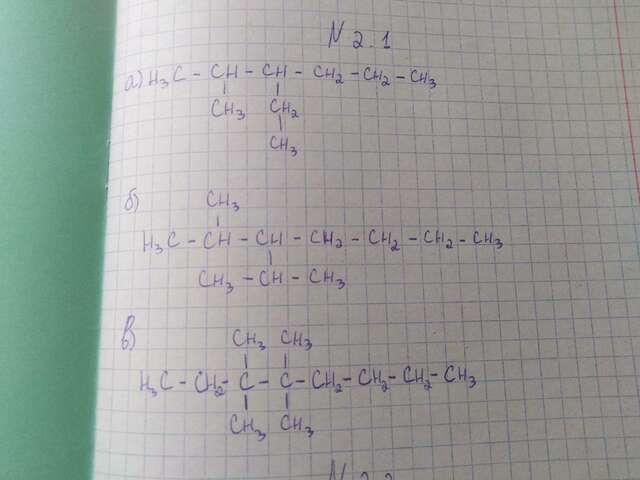 N 2.1
а) H₃C - CH - CH - CH₂ - CH₂ - CH₃
CH₃ CH₂
CH₃
б) CH₃
H₃C - CH - CH - CH₂ - CH₂ - CH₂ - CH₃
CH₃ - CH - CH₃
в) CH₃ CH₃
H₃C - CH₂ - C - C - CH₂ - CH₂ - CH₂ - CH₃
CH₃ CH₃